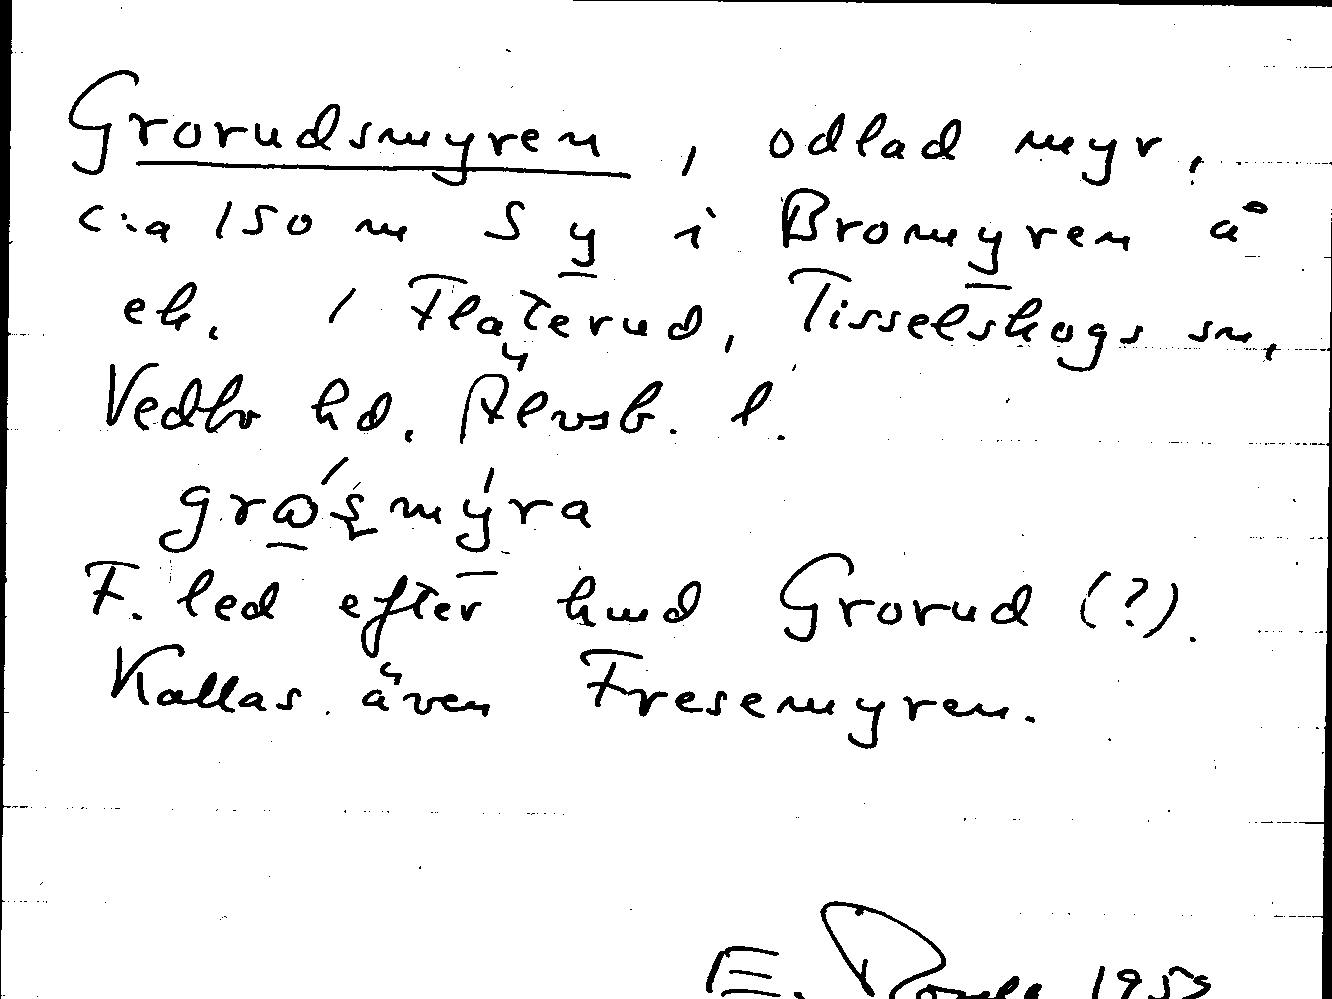 Grorudsmyren, odlad myr,
c:a 150 m S y i Bromyren å
ek. 1 Flaterud, Tisselskogs sn,
Vedbo hd. Älvsb. l.
grɷ́s̨mýra
F. led efter hmd Grorud (?).
Kallas även Fresemyren.
E. 1959